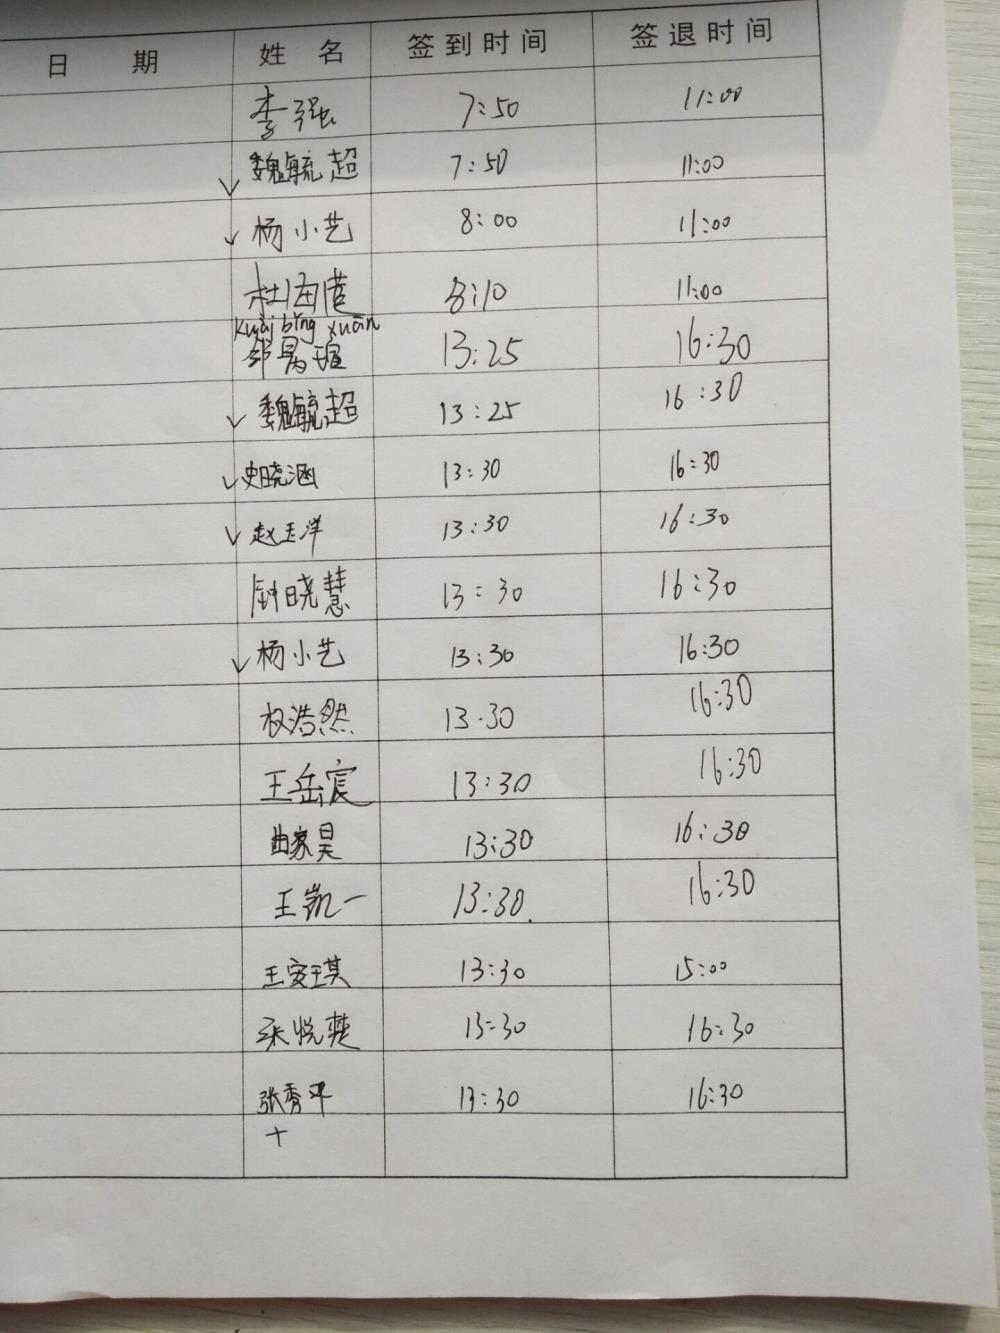 日 期 姓 名 签到时间 签退时间
李强 7:50 11:00
魏毓超 7:50 11:00
杨小艺 8:00 11:00
杜海 8:10 11:00
kuài bǐng xuān
13:25 16:30
魏毓超 13:25 16:30
史晓涵 13:30 16:30
赵玉洋 13:30 16:30
晓慧 13:30 16:30
杨小艺 13:30 16:30
权浩然 13.30 16:30
王岳宸 13:30 16:30
曲家昊 13:30 16:30
王凯一 13:30. 16:30
王安琪 13:30 15:00
张悦 13:30 16:30
张秀平 13:30 16:30